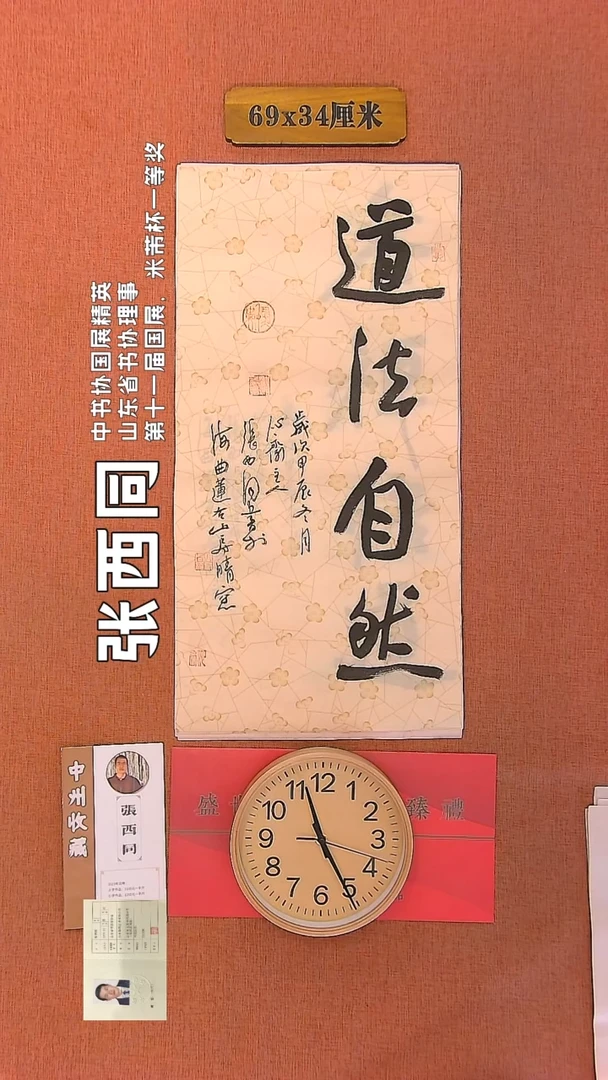 69x34厘米
道法自然
歲次甲辰冬月
心齋主人
張西同書於
海曲蓮台山房晴窓
张西同
中书协国展精英
山东省书协理事
第十一届国展，米芾杯一等奖
盛世
臻禮
張西同
12
1
2
3
4
5
6
7
8
9
10
11